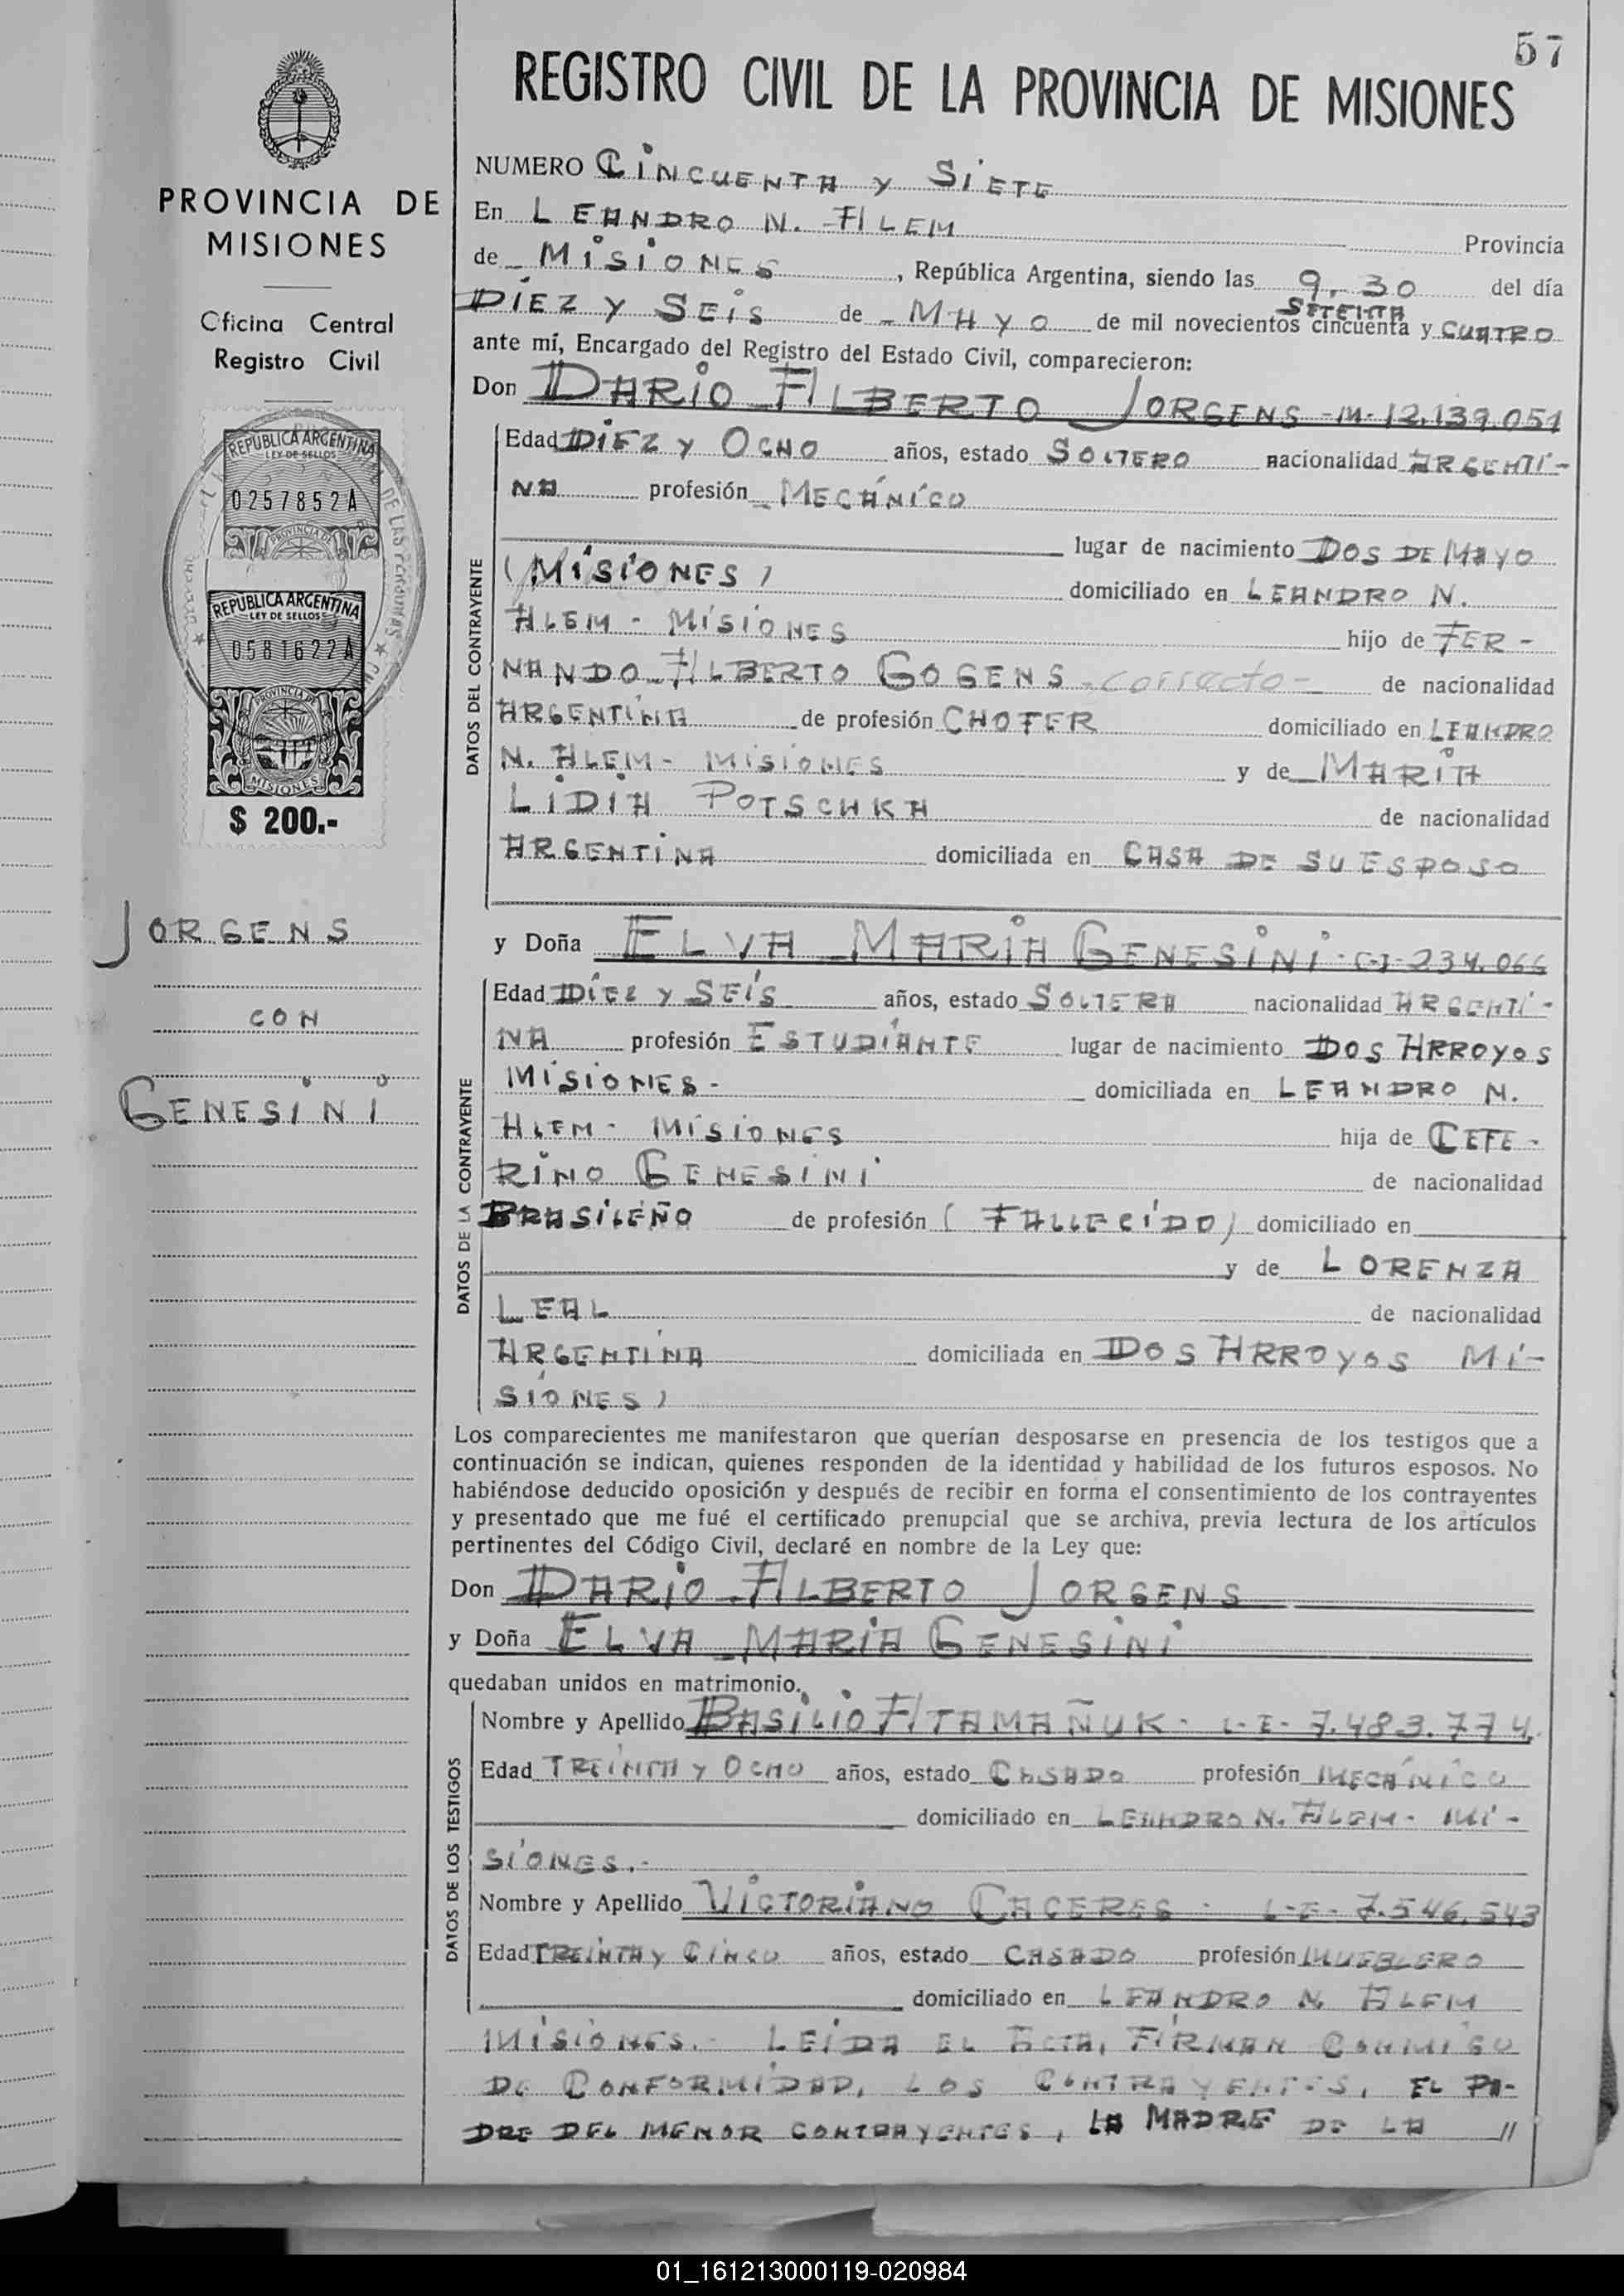 57
REGISTRO CIVIL DE LA PROVINCIA DE MISIONES
PROVINCIA DE
MISIONES
Oficina Central
Registro Civil
REPUBLICA ARGENTINA
LEY DE SELLOS
0257852A
PROVINCIA DE
REPUBLICA ARGENTINA
LEY DE SELLOS
0581622A
PROVINCIA DE
MISIONES
DE LAS PERSONAS
$ 200.-
JORGENS
CON
GENESINI
NUMERO CINCUENTA Y SIETE
En LEANDRO N. ALEM Provincia
de MISIONES, República Argentina, siendo las 9,30 del día
DIEZ Y SEIS de MAYO de mil novecientos cincuenta SETENTA y CUATRO
ante mí, Encargado del Registro del Estado Civil, comparecieron:
Don DARIO ALBERTO JORGENS -M- 12.139.051
DATOS DEL CONTRAYENTE
Edad DIEZ Y OCHO años, estado SOLTERO nacionalidad ARGENTI-
NA profesión MECÁNICO
lugar de nacimiento DOS DE MAYO
(MISIONES) domiciliado en LEANDRO N.
ALEM - MISIONES hijo de FER-
NANDO ALBERTO GOGENS -correcto- de nacionalidad
ARGENTINA de profesión CHOFER domiciliado en LEANDRO
N. ALEM - MISIONES y de MARIA
LIDIA POTSCHKA de nacionalidad
ARGENTINA domiciliada en CASA DE SU ESPOSO
y Doña ELVA MARIA GENESINI - C-I- 234.066
DATOS DE LA CONTRAYENTE
Edad DIEZ Y SEIS años, estado SOLTERA nacionalidad ARGENTI-
NA profesión ESTUDIANTE lugar de nacimiento DOS ARROYOS
MISIONES - domiciliada en LEANDRO N.
ALEM - MISIONES hija de CEFE-
RINO GENESINI de nacionalidad
BRASILEÑO de profesión (FALLECIDO) domiciliado en
y de LORENZA
LEAL de nacionalidad
ARGENTINA domiciliada en DOS ARROYOS MI-
SIONES)
Los comparecientes me manifestaron que querían desposarse en presencia de los testigos que a
continuación se indican, quienes responden de la identidad y habilidad de los futuros esposos. No
habiéndose deducido oposición y después de recibir en forma el consentimiento de los contrayentes
y presentado que me fué el certificado prenupcial que se archiva, previa lectura de los artículos
pertinentes del Código Civil, declaré en nombre de la Ley que:
Don DARIO ALBERTO JORGENS
y Doña ELVA MARIA GENESINI
quedaban unidos en matrimonio.
DATOS DE LOS TESTIGOS
Nombre y Apellido BASILIO ATAMAÑUK - L-E- 7.483.774.
Edad TREINTA Y OCHO años, estado CASADO profesión MECÁNICO
domiciliado en LEANDRO N. ALEM - MI-
SIONES.-
Nombre y Apellido VICTORIANO CACERES - L-E- 7.546.543
Edad TREINTA Y CINCO años, estado CASADO profesión MUEBLERO
domiciliado en LEANDRO N. ALEM
MISIONES.- LEIDA EL ACTA, FIRMAN CONMIGO
DE CONFORMIDAD, LOS CONTRAYENTES, EL PA-
DRE DEL MENOR CONTRAYENTES, LA MADRE DE LA //
01_161213000119-020984